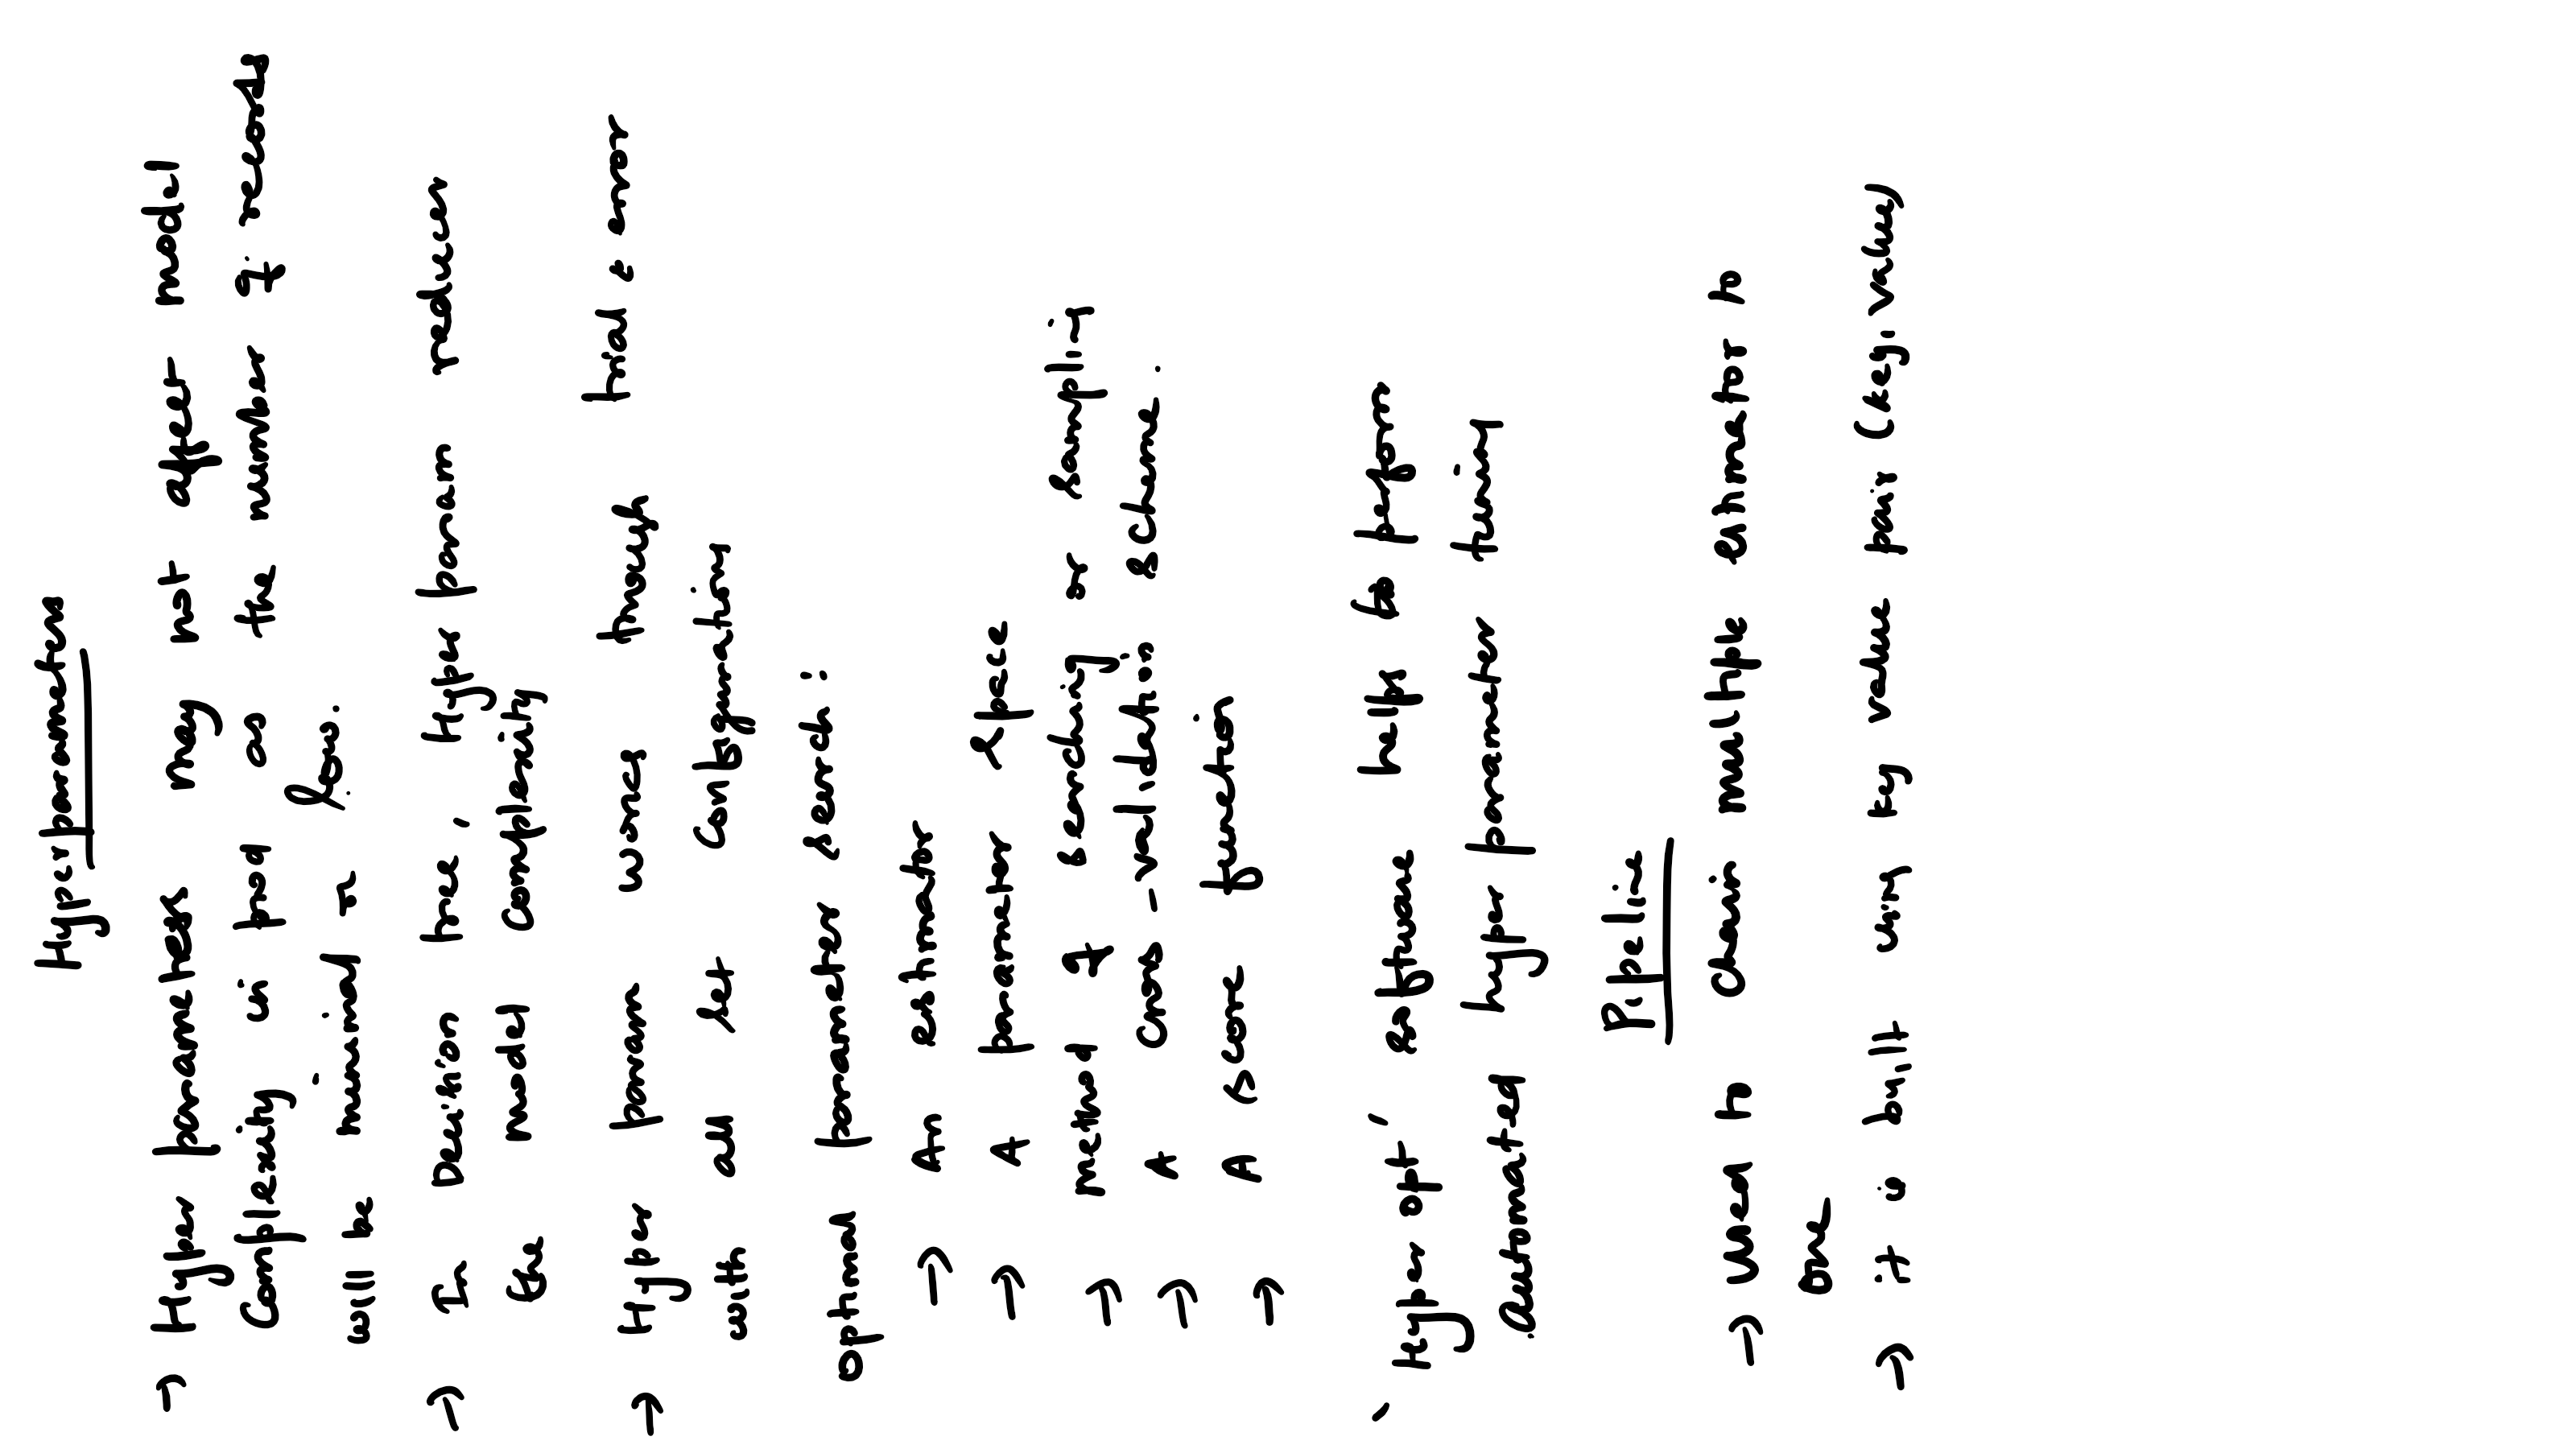 Hyperparameters
→ Hyper parameters may not affect model
Complexity in prod as the number of records
will be minimal or low.
→ In Decision tree, Hyper param reduces
the model complexity
→ Hyper param works through trial & error
with all set configurations
optimal parameter search:
→ An estimator
→ A parameter space
→ method of searching or sampling
→ A cross-validation scheme.
→ A score function
'Hyper opt' software helps to perform
Automated hyper parameter tuning
Pipeline
→ used to chain multiple estimator to
one
→ it is built using key value pair (key, value)